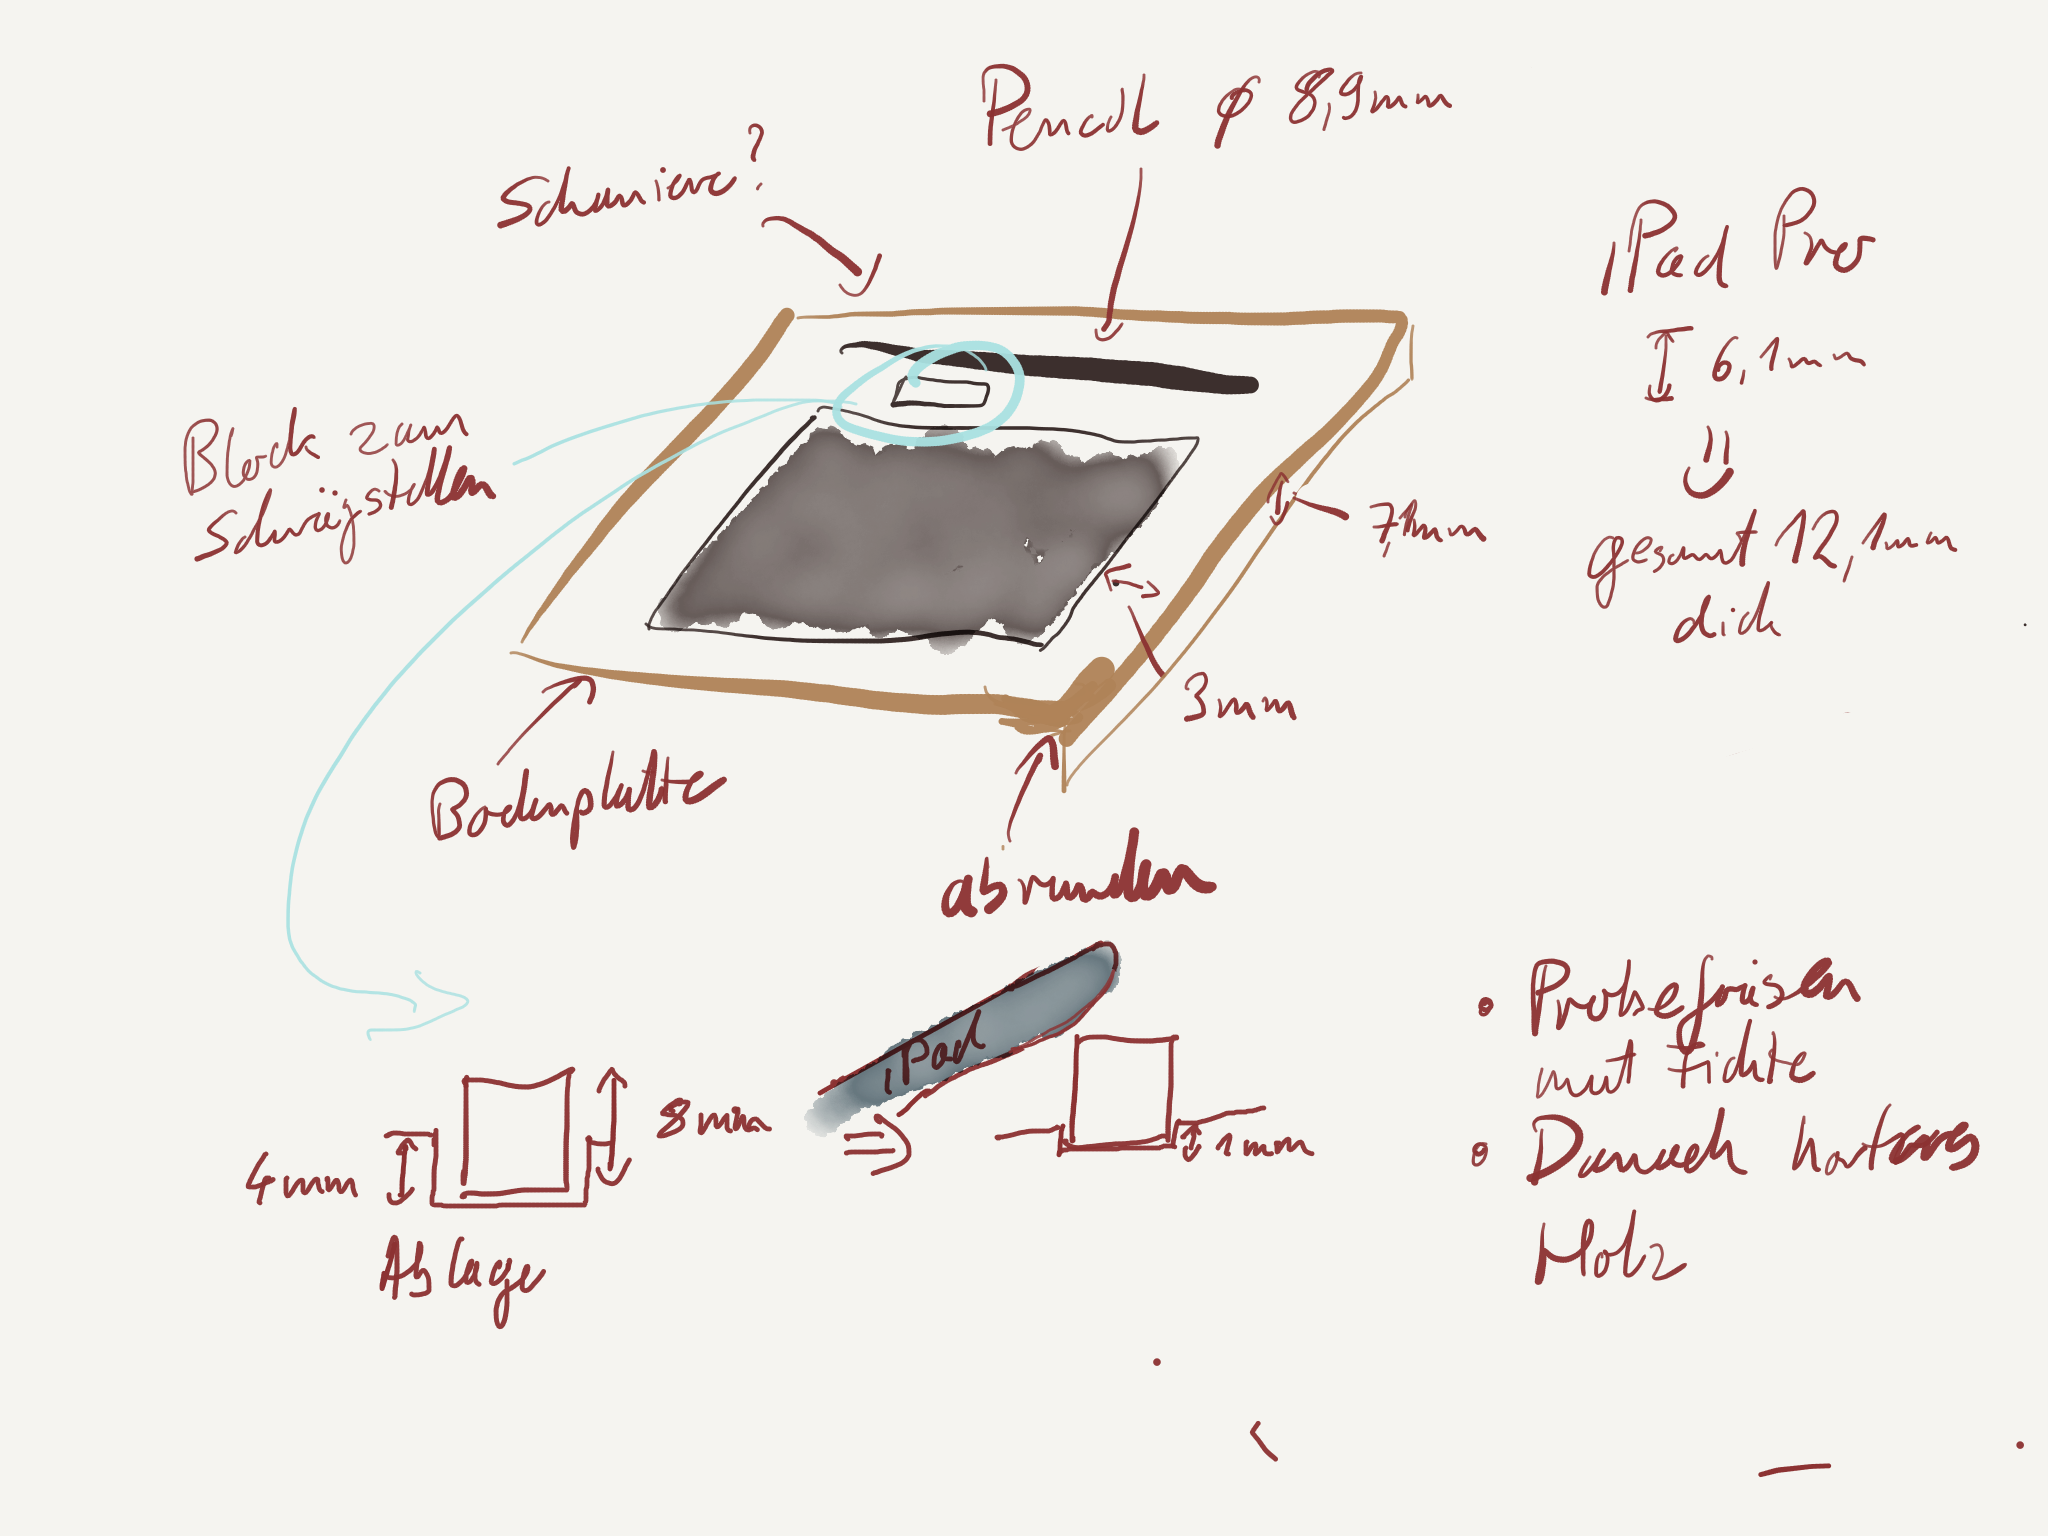 Pencil ⌀ 8,9mm
Scharniere?
iPad Pro
6,1mm
gesamt 12,1mm
dick
Block zum
Schrägstellen
7,1mm
3mm
Bodenplatte
abrunden
iPad
8mm
4mm
1mm
Ablage
• Probefräsen
mit Fichte
• Danach hartes
Holz